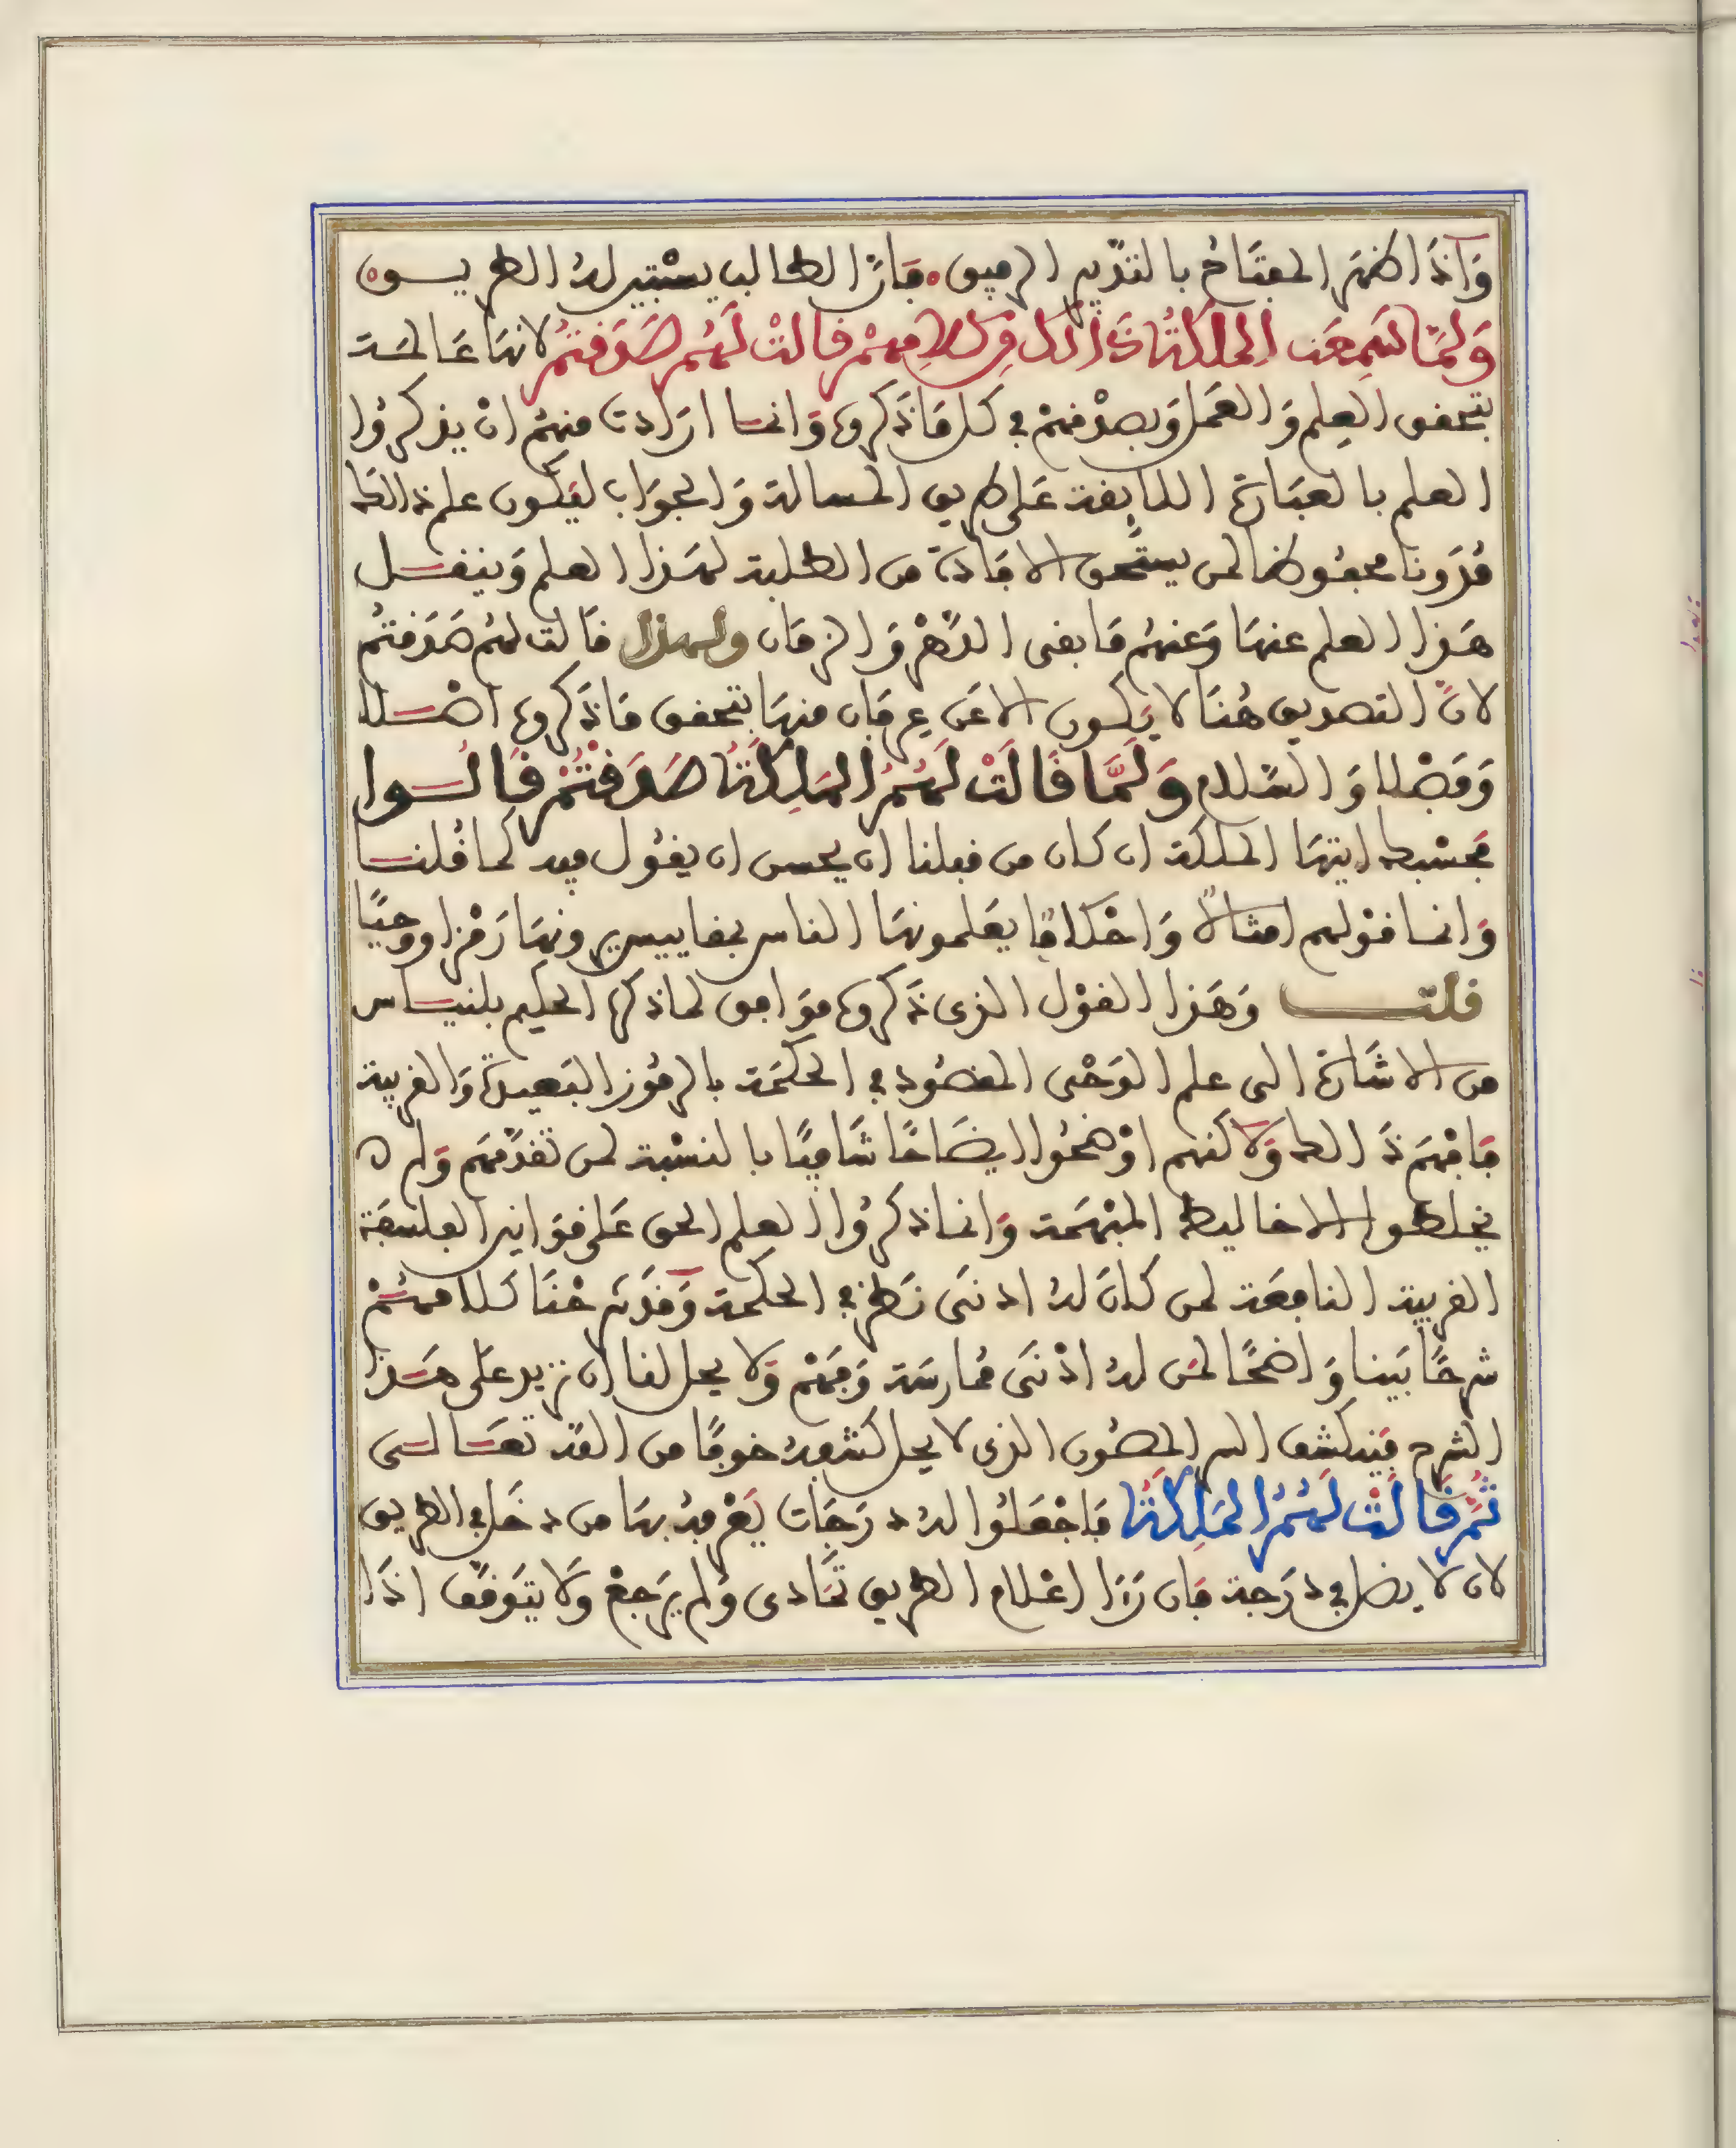 وَاذَا ظهَر المفتَاح بالتدْبير الرفيق فَانَّ الطالب يسْتبين لهُ الطريــق
وَلَمَّا سَمِعَت الملكَةُ ذَالك مِن كلامِهمْ قالتْ لَهُم صَدَقتُمْ لانهَا عَالمـة
بتحقق العِلم وَالعَمل وَبصدْقهمْ في كل مَا ذَكروه وَانمـا ارَادت منهمُ ان يذكرُوا
العلم بالعبَارَة اللايقة عَلى طريق المسالة وَالجوَاب ليَكون علم ذالك
مُدَونا محفُوظا لمن يستَحق الافَادة من الطلبة لهَذا العلم وَينقــل
هَذا العلم عنهَا وَعنهُم مَا بقى الدَّهْر وَالزمَان ولهذا قالت لهُم صَدَقتُم
لانَّ التصديق هُنَا لا يَكون الا عَن عِرفَان منهَا بتحقق مَا ذَكروه اصْــلا
وَفَصْلا وَالسَّلام وَلَمَّا قَالَتْ لَهُمُ المَلِكَةُ صَدَقْتُمْ قَالُــوا
فَحسْبك ايتهَا الملكة ان كان من قبلنا ان يحسن ان يقُول فيه كما قُلنــا
وَانمـا قوْلهم امثالاً وَاحْكامًا يعَلمونهَا الناس بمقاييس يرونهَا رَمْزا ووحيًا
قلتــــ وَهَذا القوْل الذى ذَكروه موَافق لما ذكره الحكيم بلنيــاس
من الاشَارَة الى علم الوَحْى المقصُود في الحكمَة بالرمُوز البَعيدَة وَالقريبة
فَافْهَم ذَالك وَلاكنهم اوْضحُوا ايضَاحًا شَافيًا بالنسْبة لمن تقدَّمَهم وَلم
يخلطوا الاخاليط المبْهَمَة وَانما ذكرُوا العلم الحق عَلى قوَانين الفلسفَة
القريبة النافِعَة لمن كانَ لهُ ادنَى نَظر في الحكمة وَقدْ شرَحْنَا كَلامهُمْ
شرحًا بَينا وَاضحًا لمَن لهُ ادْنَى مُمارسَة وَفَهْم وَلا يحل لنا ان نزيد علَى هَــذا
الشرح فينكشف السر المصُون الذى لا يحل كشفهُ خوفًا من الله تعَــالــى
ثُمَّ قَالَتْ لَهُمُ المَلِكَةُ فَاجْعَلُوا لهُ دَرَجَات يَعْرفهُ بهَا من دخَل في الطريق
لان لا يضل في درَجة فَان رَءَا اعْلام الطريق تَمَادى وَلم يرَجعْ وَلا يتوَقَّف اذَا